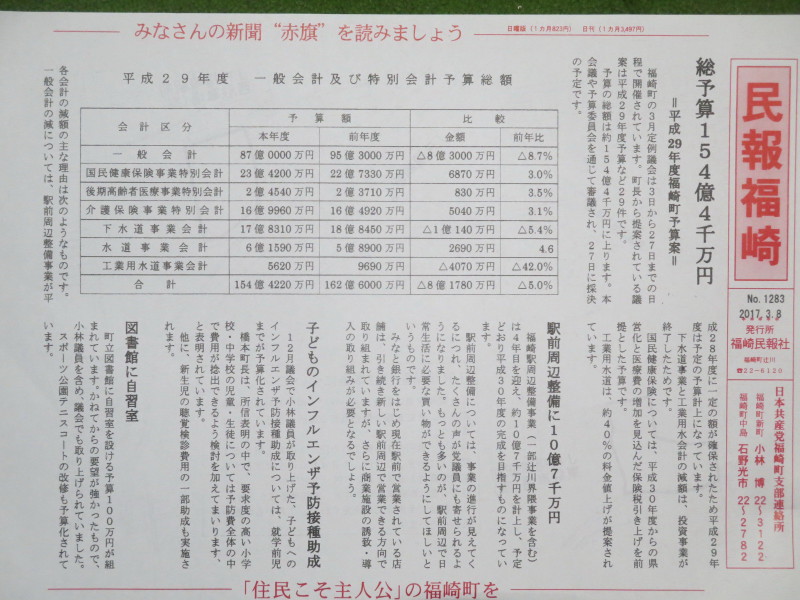 みなさんの新聞“赤旗”を読みましょう
日曜版(1カ月823円) 日刊(1カ月3,497円)
民報福崎
No.1283
2017.3.8
発行所
福崎民報社
福崎町辻川
☎22-6120
日本共産党福崎町支部連絡所
福崎町新町 小林 博 22~3122
福崎町中島 石野光市 22~2782
総予算154億4千万円
=平成29年度福崎町予算案=
福崎町の3月定例議会は3日から27日までの日
程で開催されています。町長から提案されている議
案は平成29年度予算など29件です。
予算の総額は約154億4千万円に上ります。本
会議や予算委員会を通じて審議され、27日に採決
の予定です。
平成29年度 一般会計及び特別会計予算総額
会計区分 予算額 比較
本年度 前年度 金額 前年比
一般会計 87億0000万円 95億3000万円 △8億3000万円 △8.7%
国民健康保険事業特別会計 23億4200万円 22億7330万円 6870万円 3.0%
後期高齢者医療事業特別会計 2億4540万円 2億3710万円 830万円 3.5%
介護保険事業特別会計 16億9960万円 16億4920万円 5040万円 3.1%
下水道事業会計 17億8310万円 18億8450万円 △1億140万円 △5.4%
水道事業会計 6億1590万円 5億8900万円 2690万円 4.6
工業用水道事業会計 5620万円 9690万円 △4070万円 △42.0%
合計 154億4220万円 162億6000万円 △8億1780万円 △5.0%
各会計の減額の主な理由は次のようなものです。
一般会計の減については、駅前周辺整備事業が平
成28年度に一定の額が確保されたため平成29年
度は予定の予算計上になっています。
下水道事業と工業用水会計の減額は、投資事業が
終了したためです。
国民健康保険については、平成30年度からの県
営化と医療費の増加を見込んだ保険税引き上げを前
提とした予算です。
工業用水道は、約40%の料金値上げが提案され
ています。
駅前周辺整備に10億7千万円
福崎駅周辺整備事業(一部辻川界隈事業を含む)
は4年目を迎え、約10億7千万円を計上し、予定
どおり平成30年度の完成を目指すものになってい
ます。
駅前周辺整備については、事業の進行が見えてく
るにつれ、たくさんの声が党議員にも寄せられるよ
うになりました。もっとも多いのが、駅前周辺で日
常生活に必要な買い物ができるようにしてほしいと
いうものです。
みなと銀行をはじめ現在駅前で営業されている店
舗は、引き続き新しい駅前周辺で営業できる方向で
取り組まれていますが、さらに商業施設の誘致・導
入の取り組みが必要となるでしょう。
子どものインフルエンザ予防接種助成
12月議会で小林議員が取り上げた、子どもへの
インフルエンザ予防接種助成については、就学前児
までが予算化されています。
橋本町長は、所信表明の中で、要求度の高い小学
校・中学校の児童・生徒については予防費全体の中
で費用が捻出できるよう検討を加えてまいります、
と表明されています。
他に、新生児の聴覚検診費用の一部助成も実施さ
れます。
図書館に自習室
町立図書館に自習室を設ける予算100万円が組
まれています。かねてからの要望が強かったもので、
小林議員を含め、議会でも取り上げられていました。
スポーツ公園テニスコートの改修も予算化されて
います。
「住民こそ主人公」の福崎町を